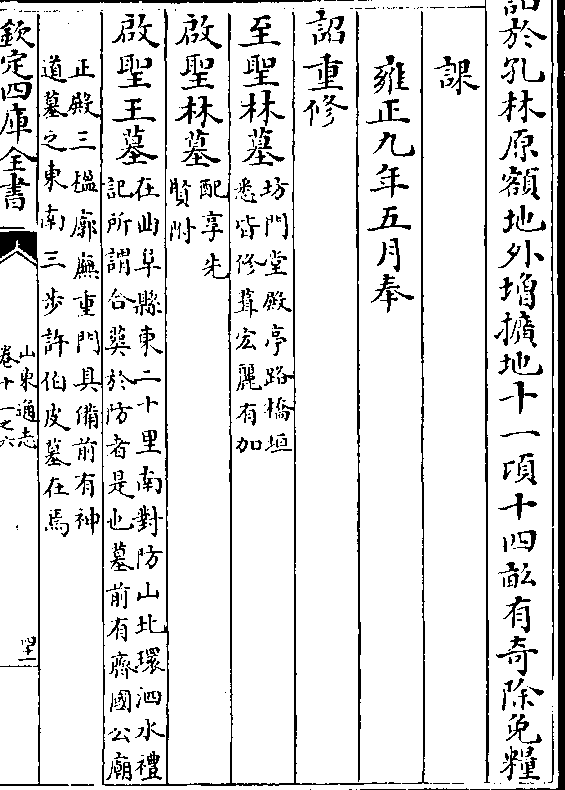 詔於孔林原額地外增擴地十一頃十四畝有奇除免糧
課
雍正九年五月奉
詔重修
至聖林墓坊門堂殿亭路橋垣
悉皆修葺宏麗有加
啟聖林墓配享先
賢附
啟聖王墓在曲阜縣東二十里南對防山北環泗水禮
記所謂合葬於防者是也墓前有齊國公廟
正殿三楹廓廡重門具備前有神
道墓之東南三步許伯皮墓在焉
欽定四庫全書
山東通志
卷十一之六
四十一